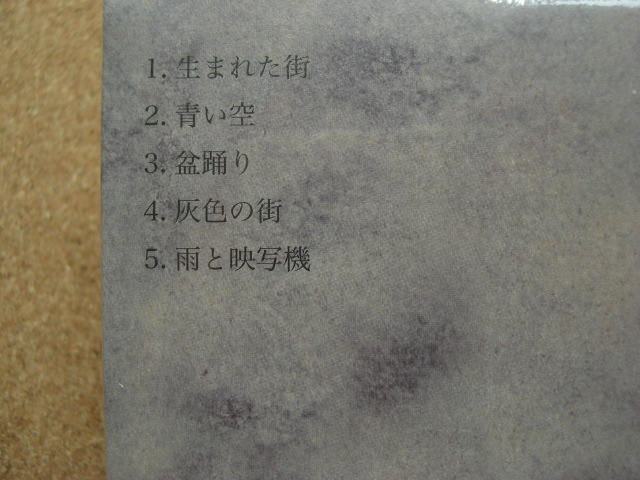 1. 生まれた街
2. 青い空
3. 盆踊り
4. 灰色の街
5. 雨と映写機